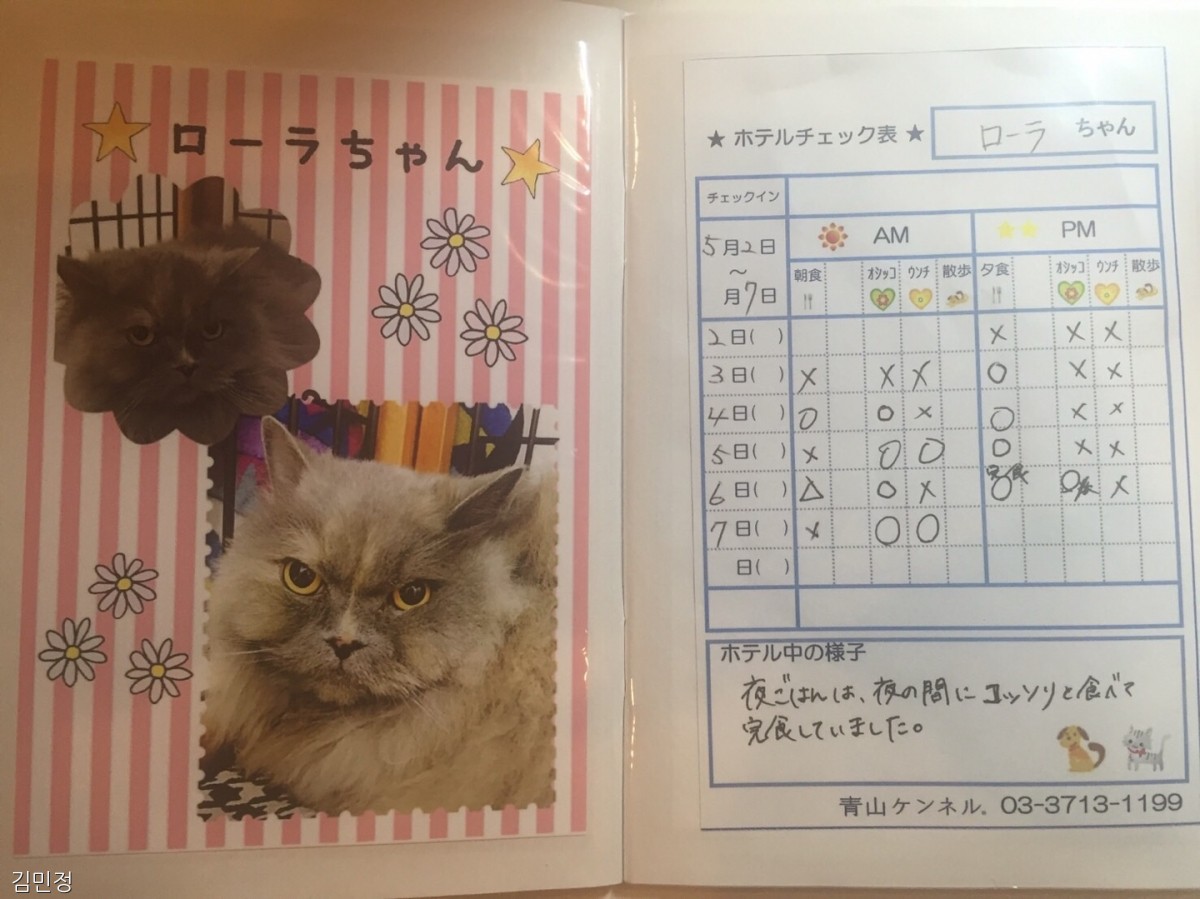 ローラちゃん
★ ホテルチェック表 ★
ローラ ちゃん
チェックイン
5月2日
～
月7日
AM
PM
朝食 ｵｼｯｺ ｳﾝﾁ 散歩 夕食 ｵｼｯｺ ｳﾝﾁ 散歩
2日( ) × × ×
3日( ) × × × ○ × ×
4日( ) ○ ○ × ○ × ×
5日( ) × ○ ○ ○ × ×
完食
6日( ) △ ○ × ○ ○ ×
7日( ) × ○ ○
日( )
ホテル中の様子
夜ごはんは、夜の間にコッソリと食べて
完食していました。
青山ケンネル。03-3713-1199
김민정